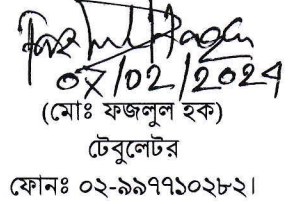 07/02/2024
(মোঃ ফজলুল হক)
টেবুলেটর
ফোনঃ ০২-৯৯৭৭১০২৮২।